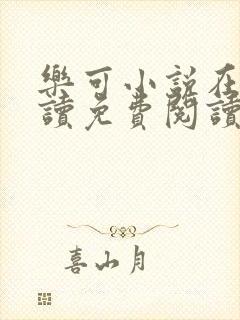 樂可小說在
讀免費閱讀
喜山月